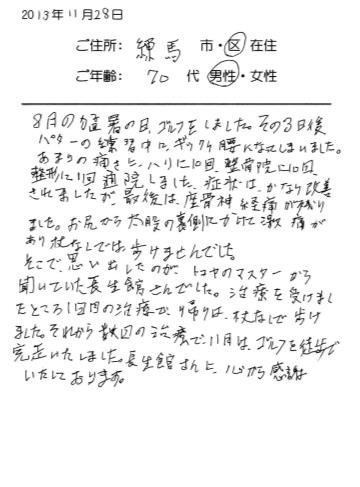 2013年11月28日
ご住所： 練馬 市・区 在住
ご年齢： 70 代 男性・女性
8月の猛暑の日、ゴルフをしました。その3日後
パターの練習中に、ギックリ腰になってしまいました。
あまりの痛さに、ハリに10回、整骨院に10回、
整形に1回通院しました。症状は、かなり改善
されましたが、最後は、座骨神経痛が残り
ました。お尻から太股の裏側にかけて激痛が
あり杖なしでは歩けませんでした。
そこで、思い出したのが、トコヤのマスターから
聞いていた長生館さんでした。治療を受けまし
たところ1回目の治療で、帰りは、杖なしで歩け
ました。それから数回の治療で、11月は、ゴルフを徒歩で
完走いたしました。長生館さんに、心から感謝
いたしております。